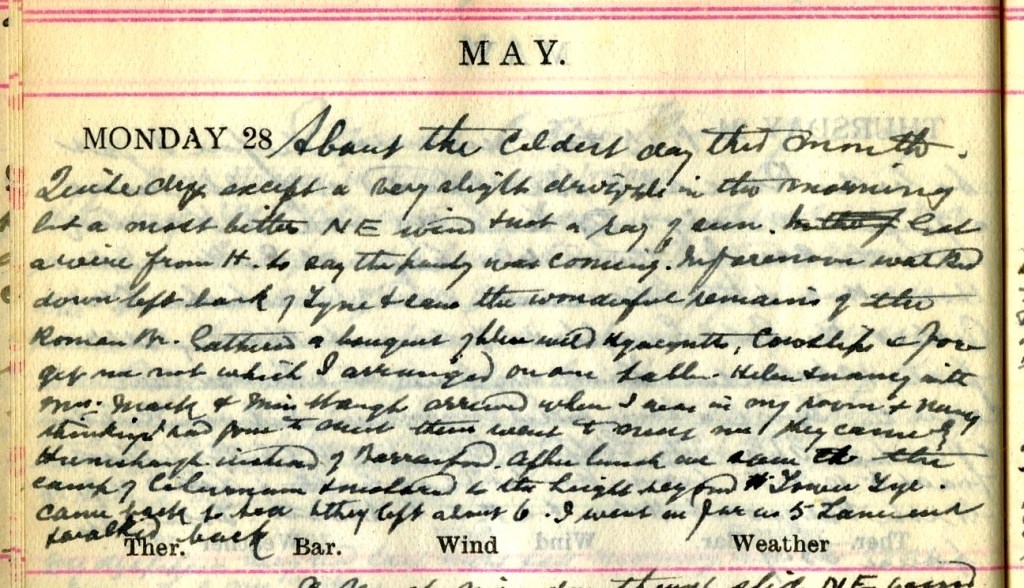 MAY.
MONDAY 28 About the coldest day this month.
Quite dry except a very slight drizzle in the morning
but a most bitter NE wind & not a ray of sun. Got
a wire from H. to say the party was coming. In forenoon walked
down left bank of Tyne & saw the wonderful remains of the
Roman Br. Gathered a bouquet of blue wild Hyacinths, Cowslips & For
get me not which I arranged on our table. Helen & Nancy with
Mrs. Mack & Miss Waugh arrived when I was in my room & Nancy
thinking I had gone to meet them went to meet me. They came by
Humshaugh instead of Barrasford. After lunch we saw the
camp of Cilurnum & motored to the height beyond Tower Tye.
Came back to tea & they left about 6. I went as far as 5 Lane end
& walked back
Ther. Bar. Wind Weather
NE